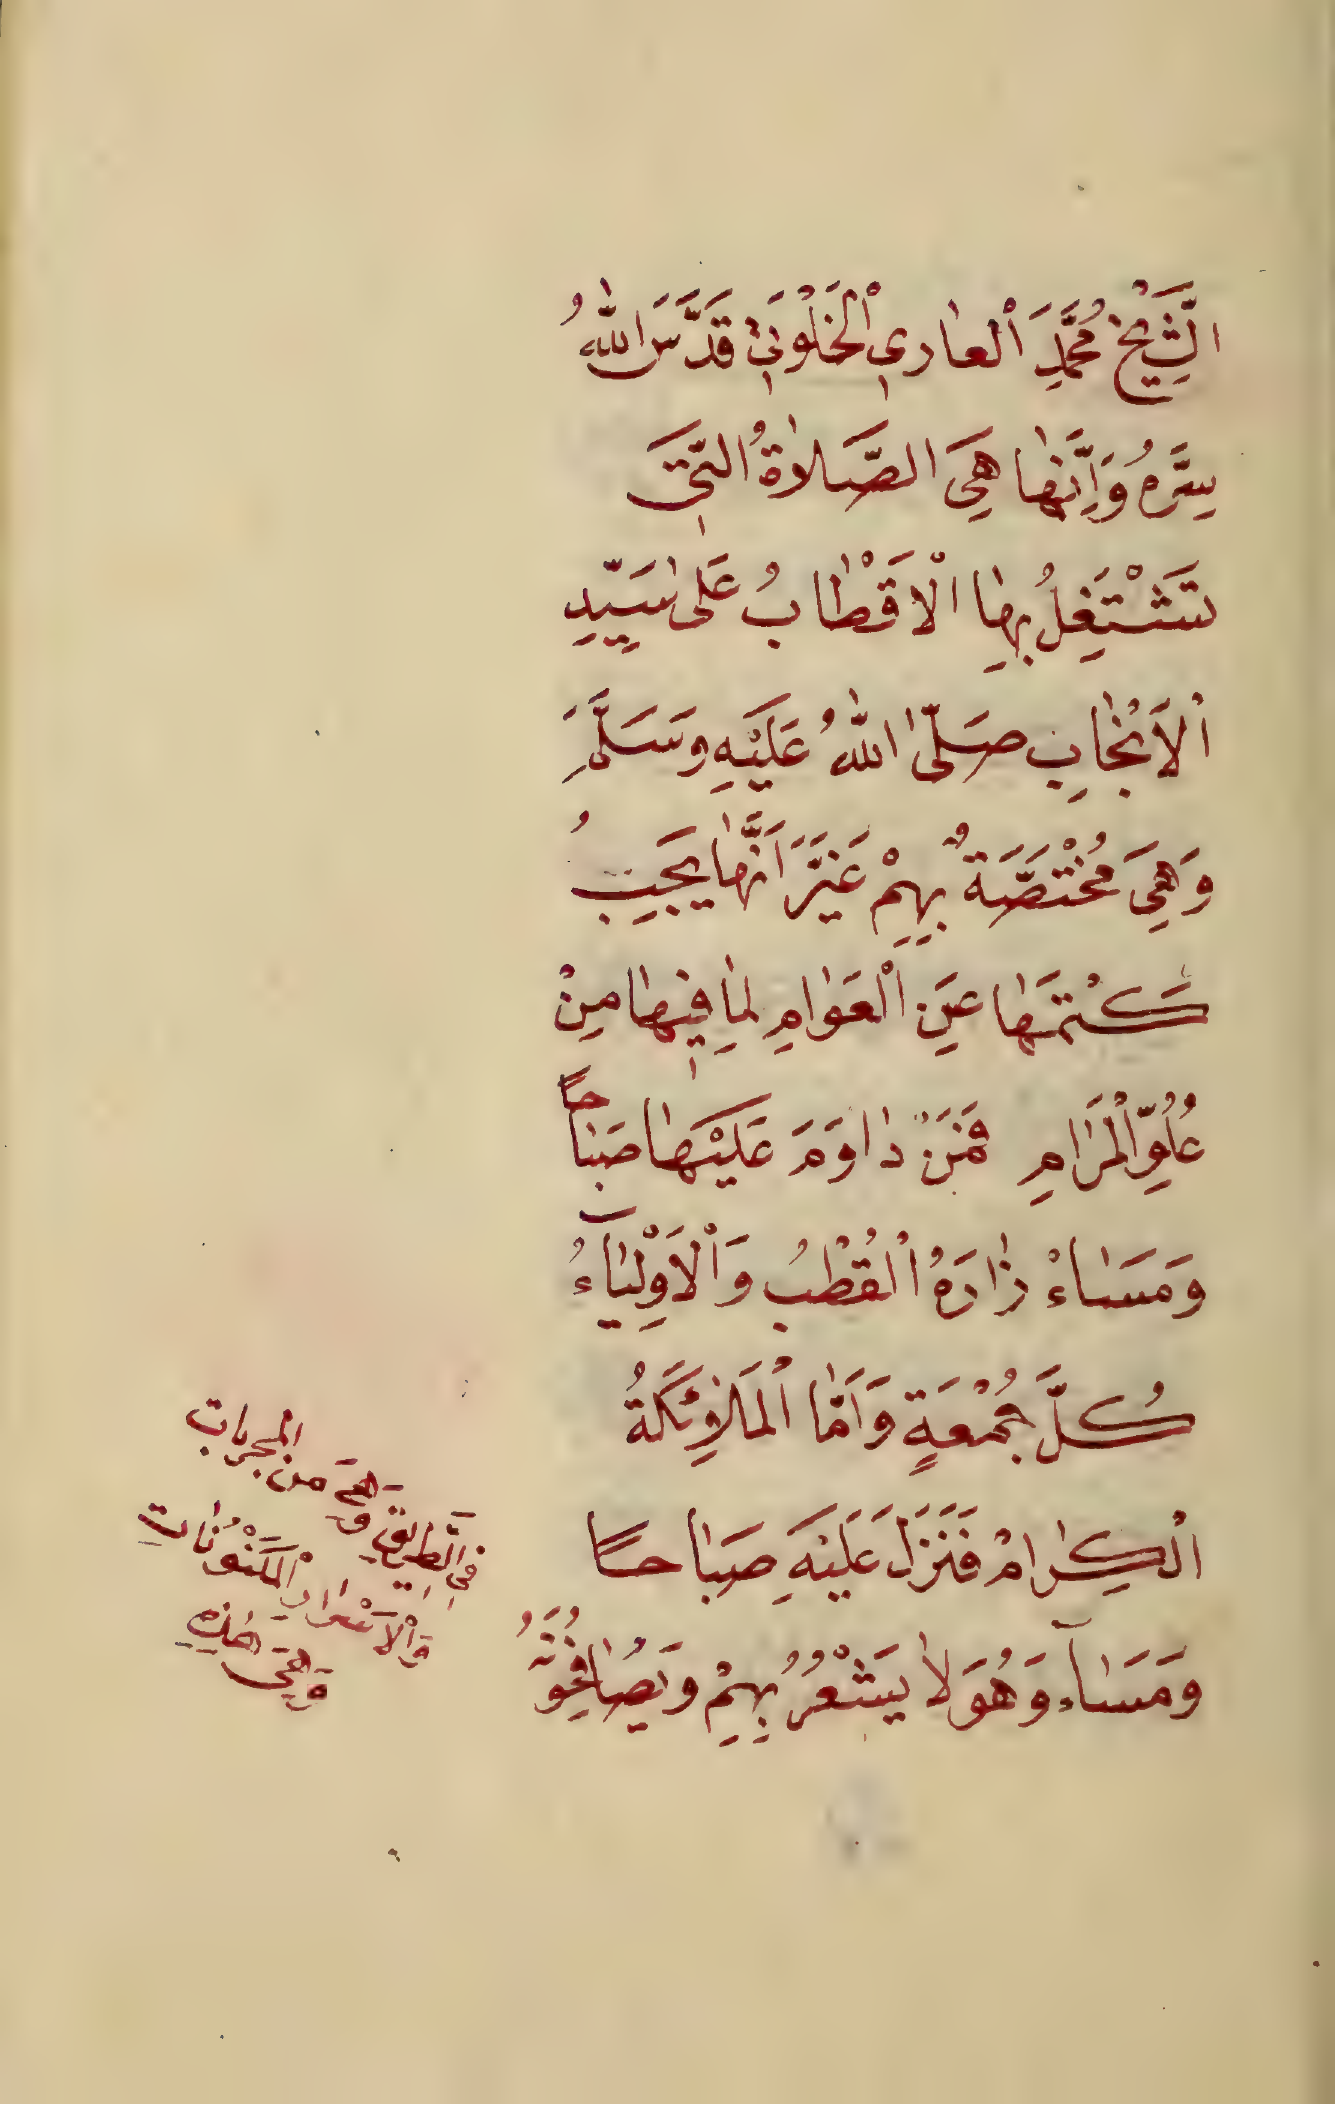 الشَّيْخِ مُحَمَّدَ الْعارى الْخَلْوَتى قَدَّسَ اللّٰهُ
سِرَّهُ وَاِنَّهٰا هِىَ الصَّلَاةُ الَّتى
تَشْتَغِلُ بِهٰا الْاَقْطٰابُ عَلٰى سَيِّدِ
الْاَنْجٰابِ صَلَّى اللّٰهُ عَلَيْهِ وَسَلَّمَ
وَهِىَ مُخْتَصَّةٌ بِهِمْ غَيْرَ اَنَّهٰا يَجِبُ
كَتْمَهٰا عَنِ الْعَوٰامِ لِمٰا فِيهٰا مِنْ
عُلُوِّ الْمَرٰامِ فَمَنْ دٰاوَمَ عَلَيْهٰا صَبٰاحًا
وَمَسٰاءْ زٰارَهُ الْقُطْبُ وَالْاَوْلِيٰآءُ
كُلَّ جُمْعَةٍ وَاَمَّا الْمَلٰائِكَةُ
الْكِرٰامْ فَتَنْزَلَ عَلَيْهِ صَبٰاحًا
وَمَسٰآء وَهُوَ لٰا يَشْعُرُ بِهِمْ وَيُصٰافِحُونَهُ
وَهِىَ مِنَ الْمجربات
فِى الطَّرِيقِ
وَالْاَسْرَارِ الْمَكْنُونٰاتِ
وَهِىَ هٰذِهِ